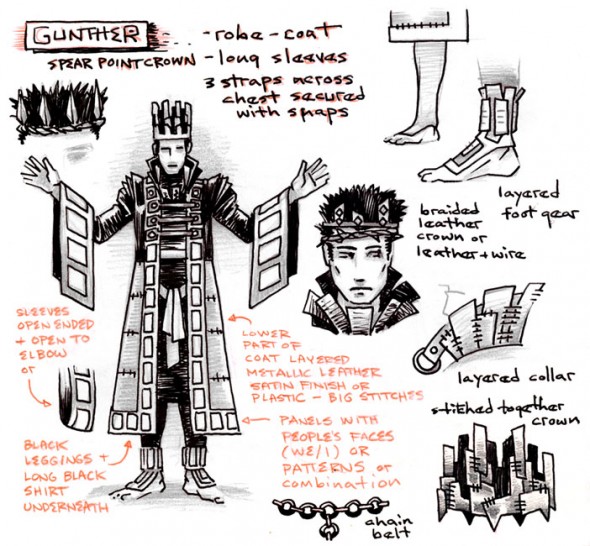 GUNTHER
SPEAR POINT CROWN
- robe-coat
- long sleeves
3 straps across
chest secured
with snaps
layered
foot gear
braided
leather
crown or
leather + wire
SLEEVES
OPEN ENDED
+ OPEN TO
ELBOW
or
LOWER
PART OF
COAT LAYERED
METALLIC LEATHER
SATIN FINISH OR
PLASTIC - BIG STITCHES
layered collar
stitched together
crown
PANELS WITH
PEOPLE'S FACES
(WE/I) OR
PATTERNS or
combination
BLACK
LEGGINGS +
LONG BLACK
SHIRT
UNDERNEATH
chain
belt